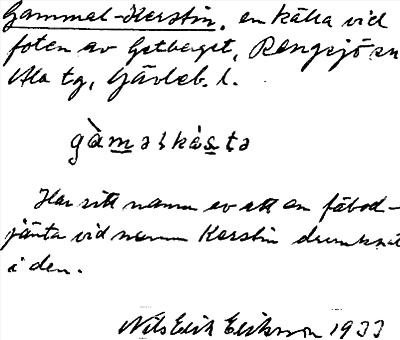 Gammal-Kerstin, en källa vid
foten av Getberget, Rengsjö sn
Ala tg, Gävleb. l.
Har sitt namn av att en fäbod-
jänta vid namn Kerstin drunknat
i den.
Nils Erik Eriksson 1933